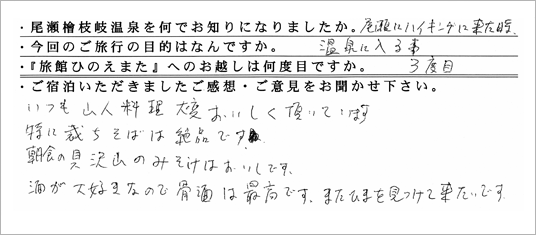 ・尾瀬檜枝岐温泉を何でお知りになりましたか。尾瀬にハイキングに来た時
・今回のご旅行の目的はなんですか。 温泉に入る事
・『旅館ひのえまた』へのお越しは何度目ですか。 3度目
・ご宿泊いただきましたご感想・ご意見をお聞かせ下さい。
いつも山人料理大変おいしく頂いています
特に裁ちそばは絶品です
朝食の具沢山のみそ汁はおいしです。
酒が大好きなので骨酒は最高です。またひまを見つけて来たいです